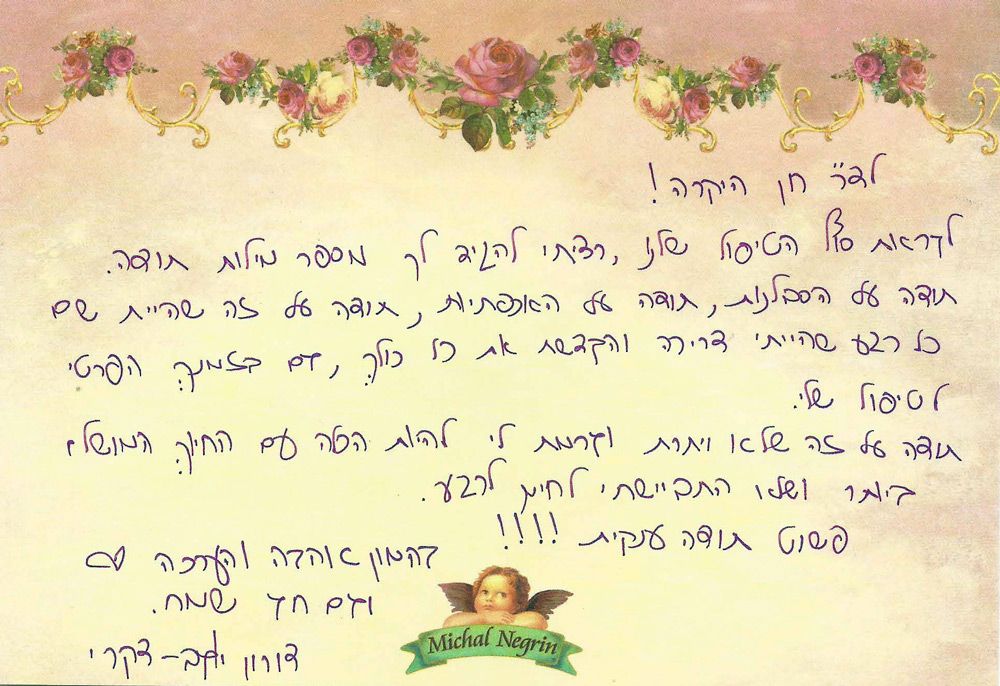 לד״ר חן היקרה!
לקראת סוף הטיפול שלנו, רציתי להגיד לך מספר מילות תודה.
תודה על הסבלנות, תודה על האכפתיות, תודה על זה שהיית שם
כל רגע שהייתי צריכה והקדשת את כל כולך, גם בזמנך הפרטי
לטיפול שלי.
תודה על זה שלא ויתרת וגרמת לי להיות הכלה עם החיוך המושלם
ביותר ושלא התביישתי לחייך לרגע.
פשוט תודה ענקית !!!!
בהמון אהבה והערכה
וגם חג שמח.
דורון יעקב-צקרי
Michal Negrin